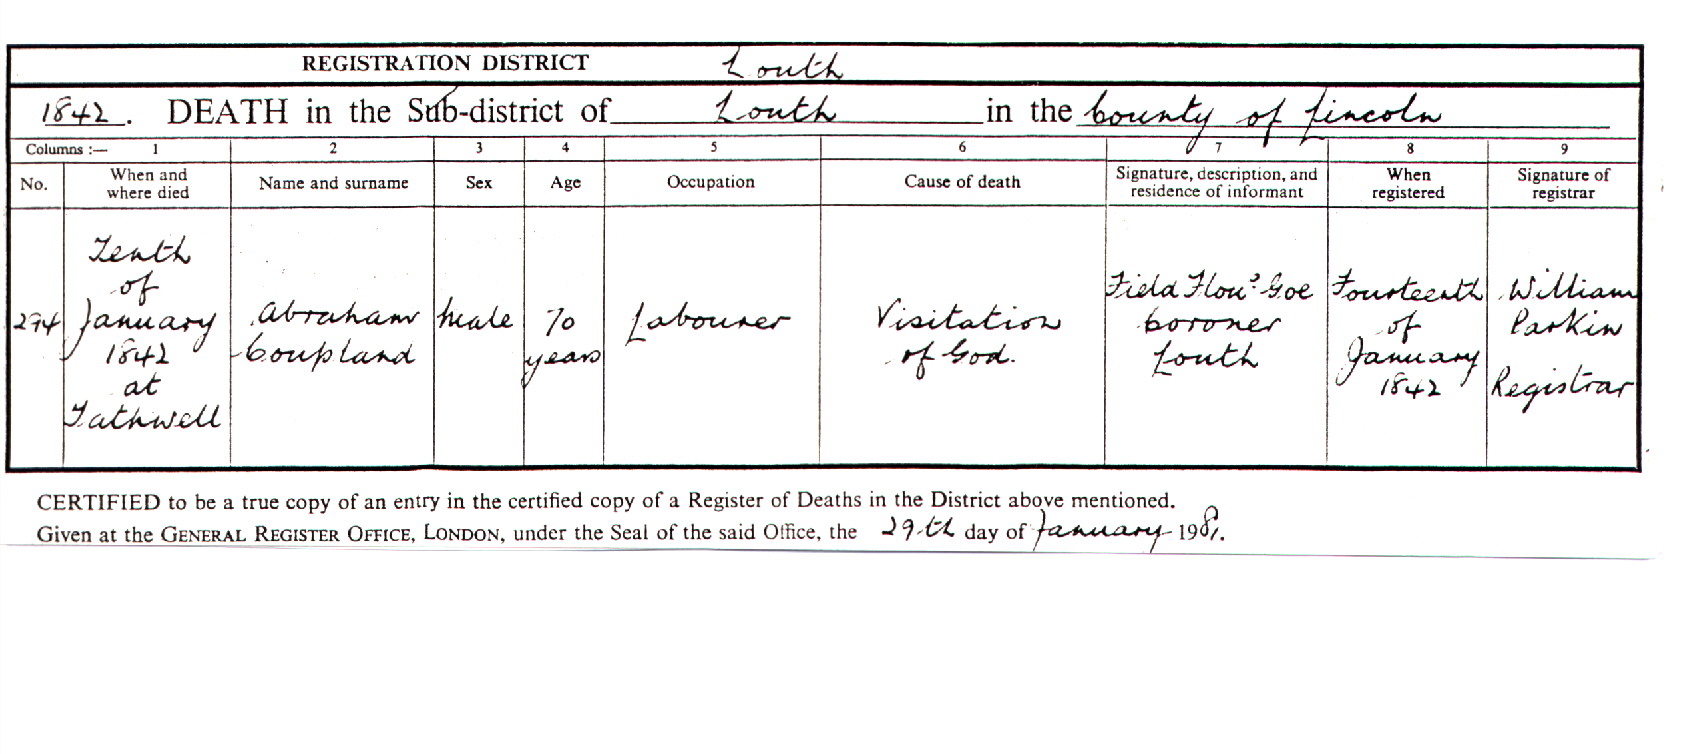 REGISTRATION DISTRICT Louth
1842. DEATH in the Sub-district of Louth in the County of Lincoln
Columns :— 1 2 3 4 5 6 7 8 9
No. When and where died Name and surname Sex Age Occupation Cause of death Signature, description, and residence of informant When registered Signature of registrar
294
Tenth
of
January
1842
at
Tathwell
Abraham
Coupland
Male
70
years
Labourer
Visitation
of God.
Field Flow? Goe
Coroner
Louth
Fourteenth
of
January
1842
William
Parkin
Registrar
CERTIFIED to be a true copy of an entry in the certified copy of a Register of Deaths in the District above mentioned.
Given at the GENERAL REGISTER OFFICE, LONDON, under the Seal of the said Office, the 29th day of January 1981.